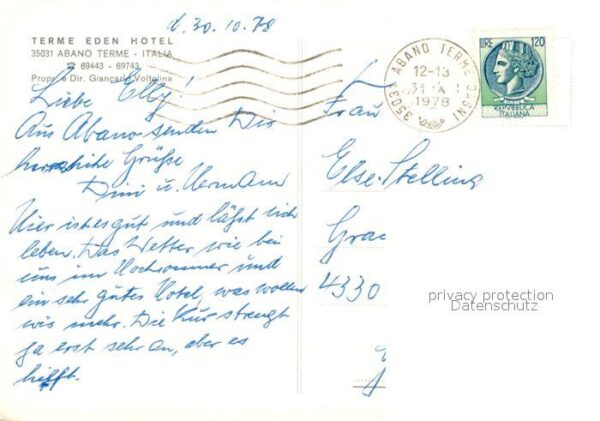 d. 30.10.78
TERME EDEN HOTEL
35031 ABANO TERME - ITALIA
☎ 69443 - 69743
Propr. e Dir. Giancarlo Voltolina
35031 ABANO TERME
12-13
31 X
1978
LIRE 120
REPVBBLICA
ITALIANA
Liebe Elly!
Aus Abano senden Dir
herzliche Grüße
Dini u. Hermann
Hier ist es gut und läßt sich
leben. Das Wetter wie bei
uns im Hochsommer und
ein sehr gutes Hotel, was wollen
wir mehr. Die Kur strengt
ja erst sehr an, aber es
hilft.
Frau
Else Stelling
Grac
4330
privacy protection
Datenschutz